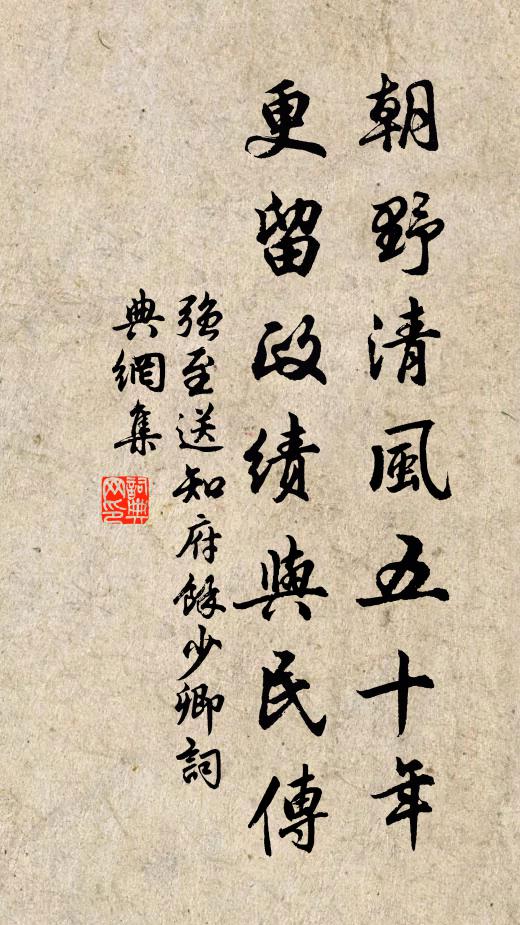 朝野清風五十年
更留政績與民傳
強至送知府餘少卿詞
典網集
詞典
网印